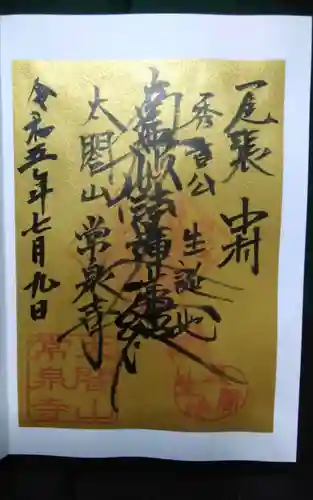 尾張中村
秀吉公生誕地
南無妙法蓮華経
太閤山常泉寺
令和五年七月九日
太閤山
常泉寺